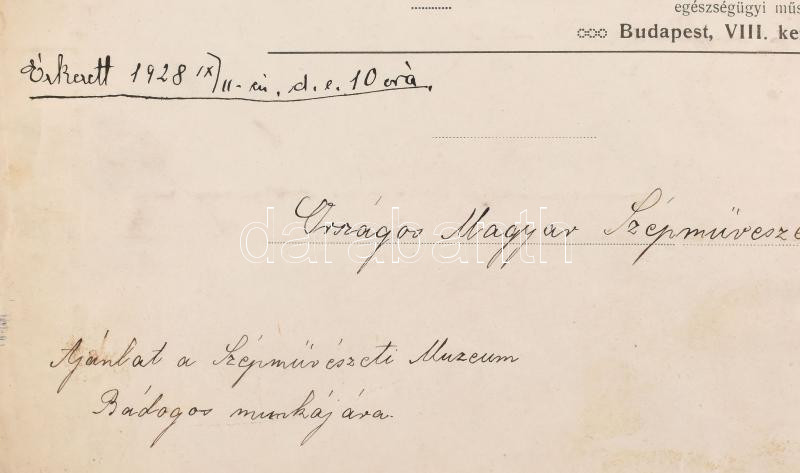 egészségügyi műs
Budapest, VIII. ke
Érkezett 1928 IX/11-én. d. e. 10 óra.
Országos Magyar Szépművésze
darabanth
Ajánlat a Szépművészeti Muzeum
Bádogos munkájára.